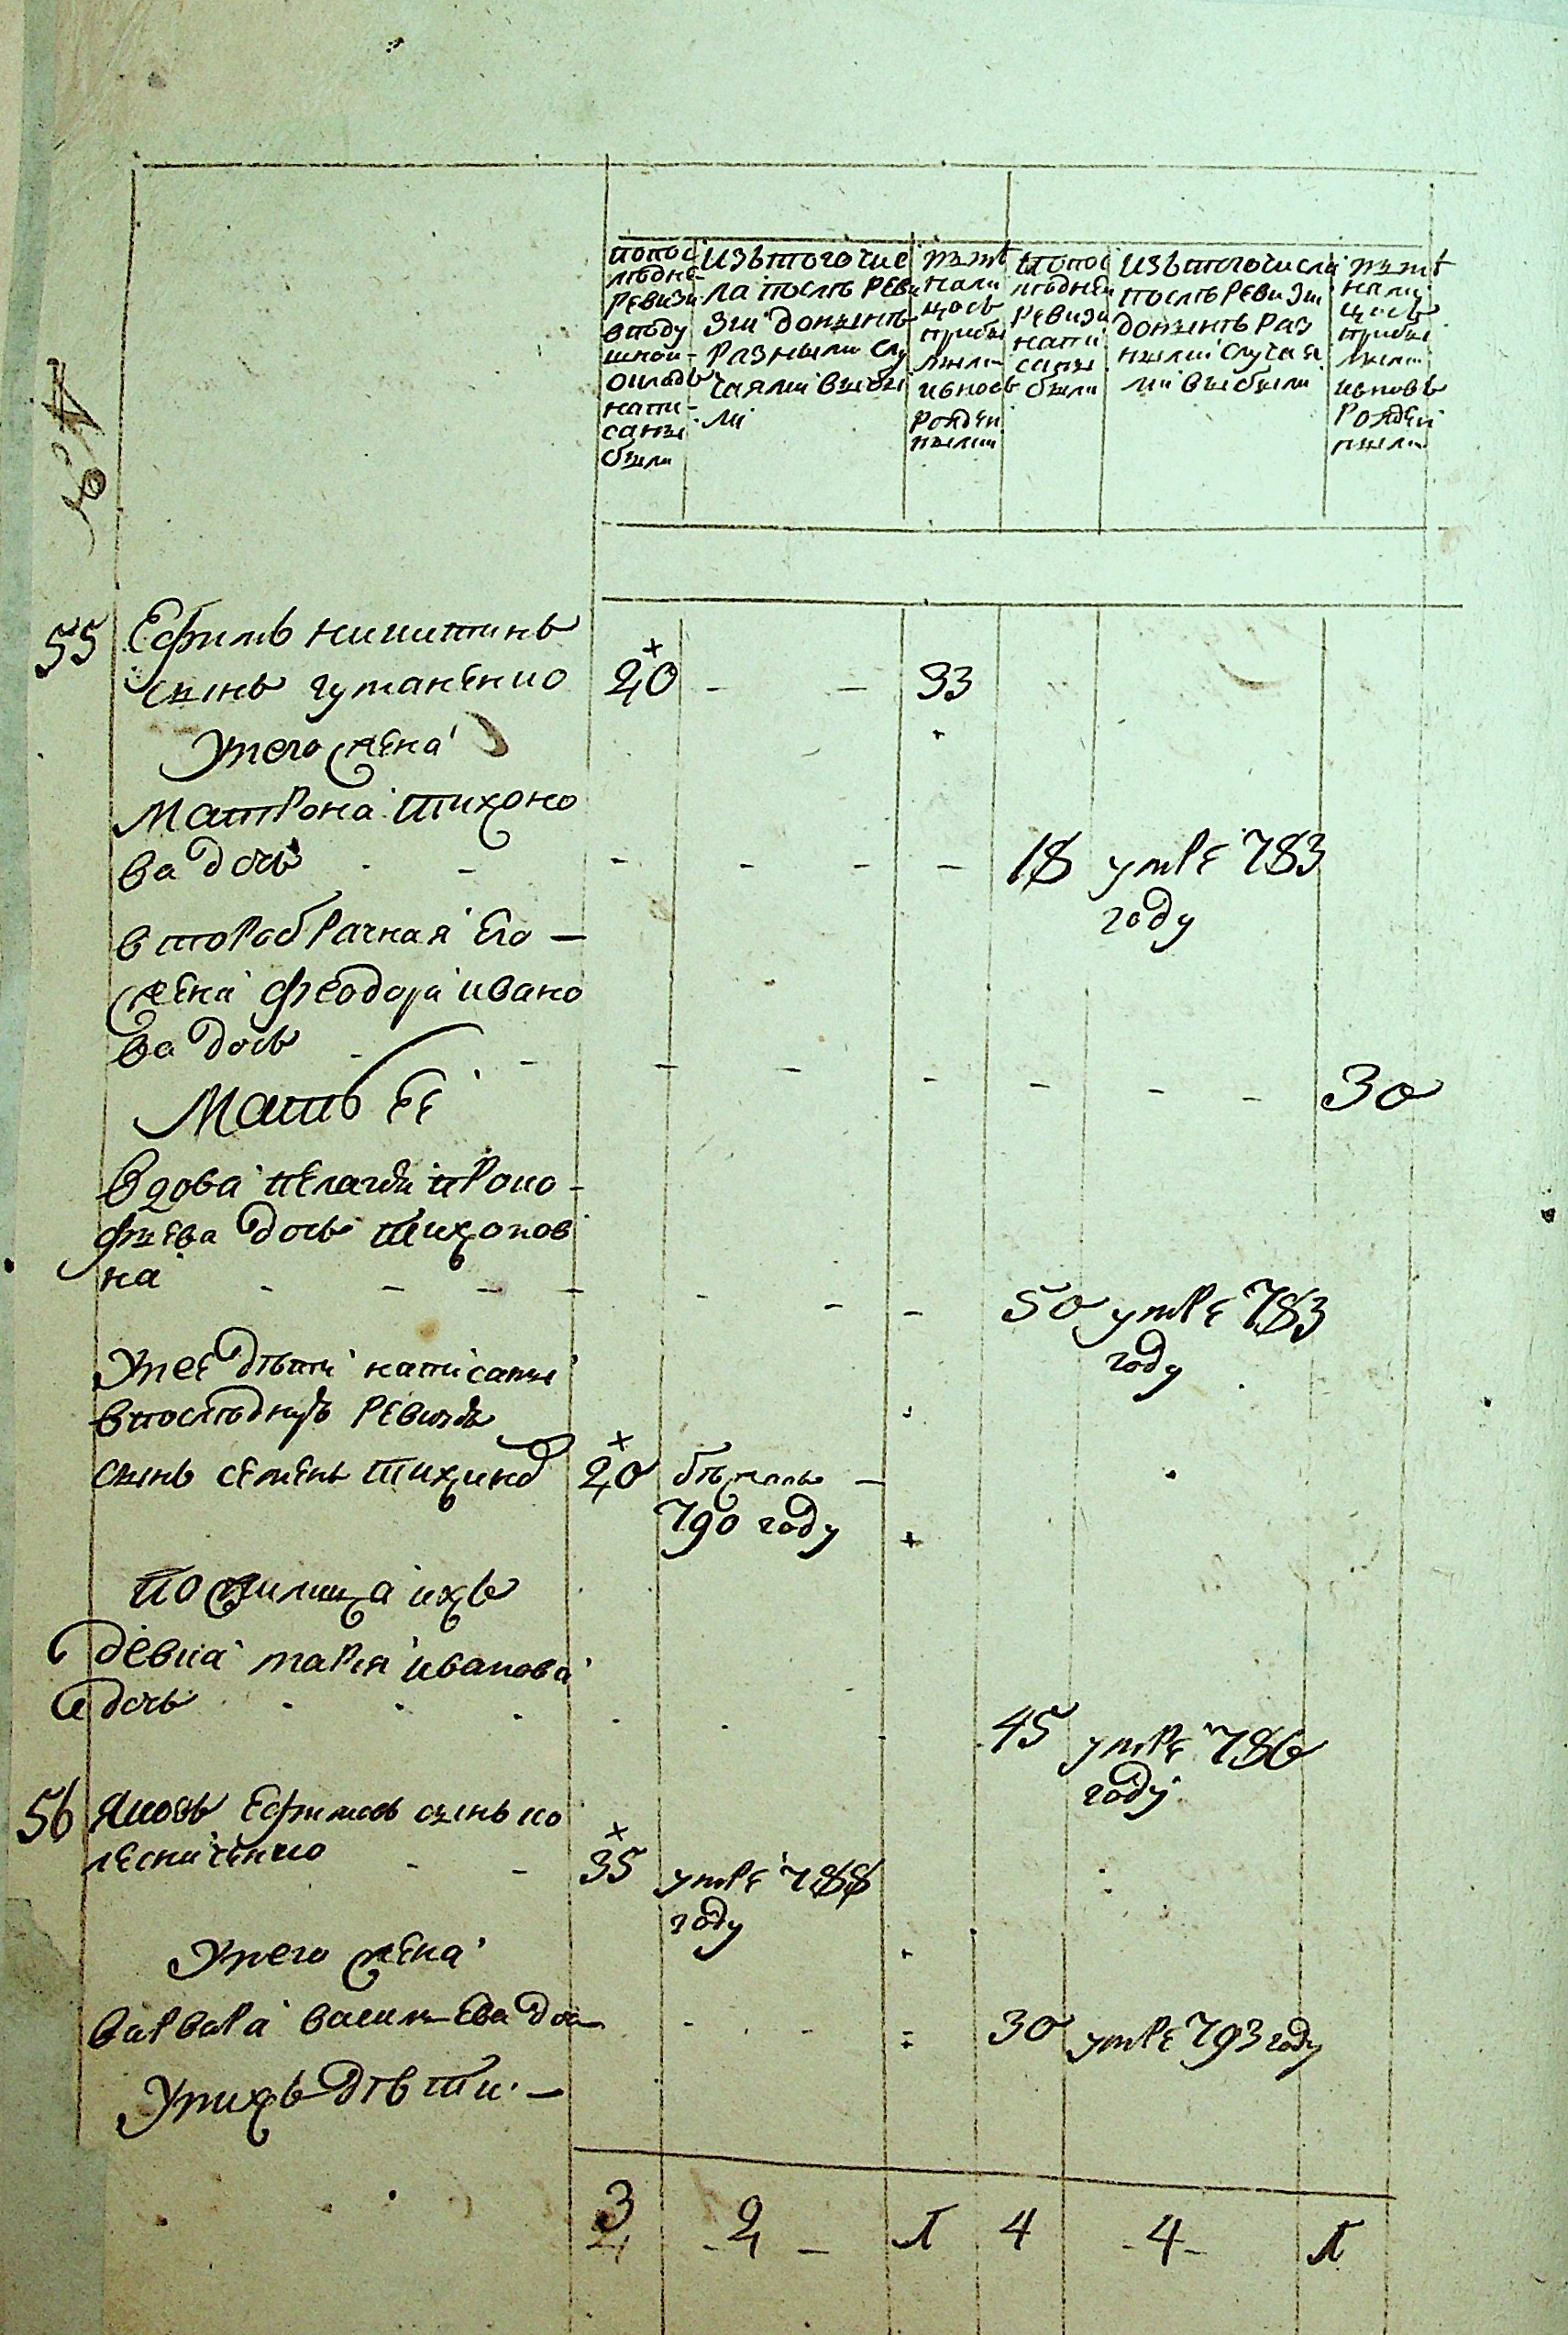 по пос
лѣдне
ревизи
в поду
шной
окладъ
напи-
саны
были
изъ того чис
ла послѣ реви
зии до нынѣ
разными слу
чаями выбы
ли
нынѣ
нали
цось
прибы
лыми
и вновь
рожден
ными
по пос
лѣдней
ревизи
напи
саны
были
изъ того числа
послѣ ревизии
до нынѣ раз
ными случая
ми выбыли
нынѣ
нали
цось
прибы
лыми
и вновь
рожден
ными
55 Ефимъ никитинъ
сынъ гуманенко 20 - - 33
У него жена
Матрона тихоно
ва дочь - - - - - - 18 умре 783
году
второбрачная его -
жена феодора ивано
ва дочь - - - - - - - - 30
Мать ее
вдова пелагея проко
фьева дочь тихонов
на - - - - - - - 50 умре 783
году
У нее дѣти написаны
в последную ревизѣю
сынъ семенъ 20 бѣжалъ -
790 году
по жилица ихъ
девка марья иванова
дочь - - - 45 умре 786
году
56 Яковъ Ефимовъ сынъ ко
лесниченко - - 35 умре 788
году
У него жена
варвара васильева дочь - - - 30 умре 793 году
У нихъ дѣти -
3 - 2 - 1 4 - 4 - 1